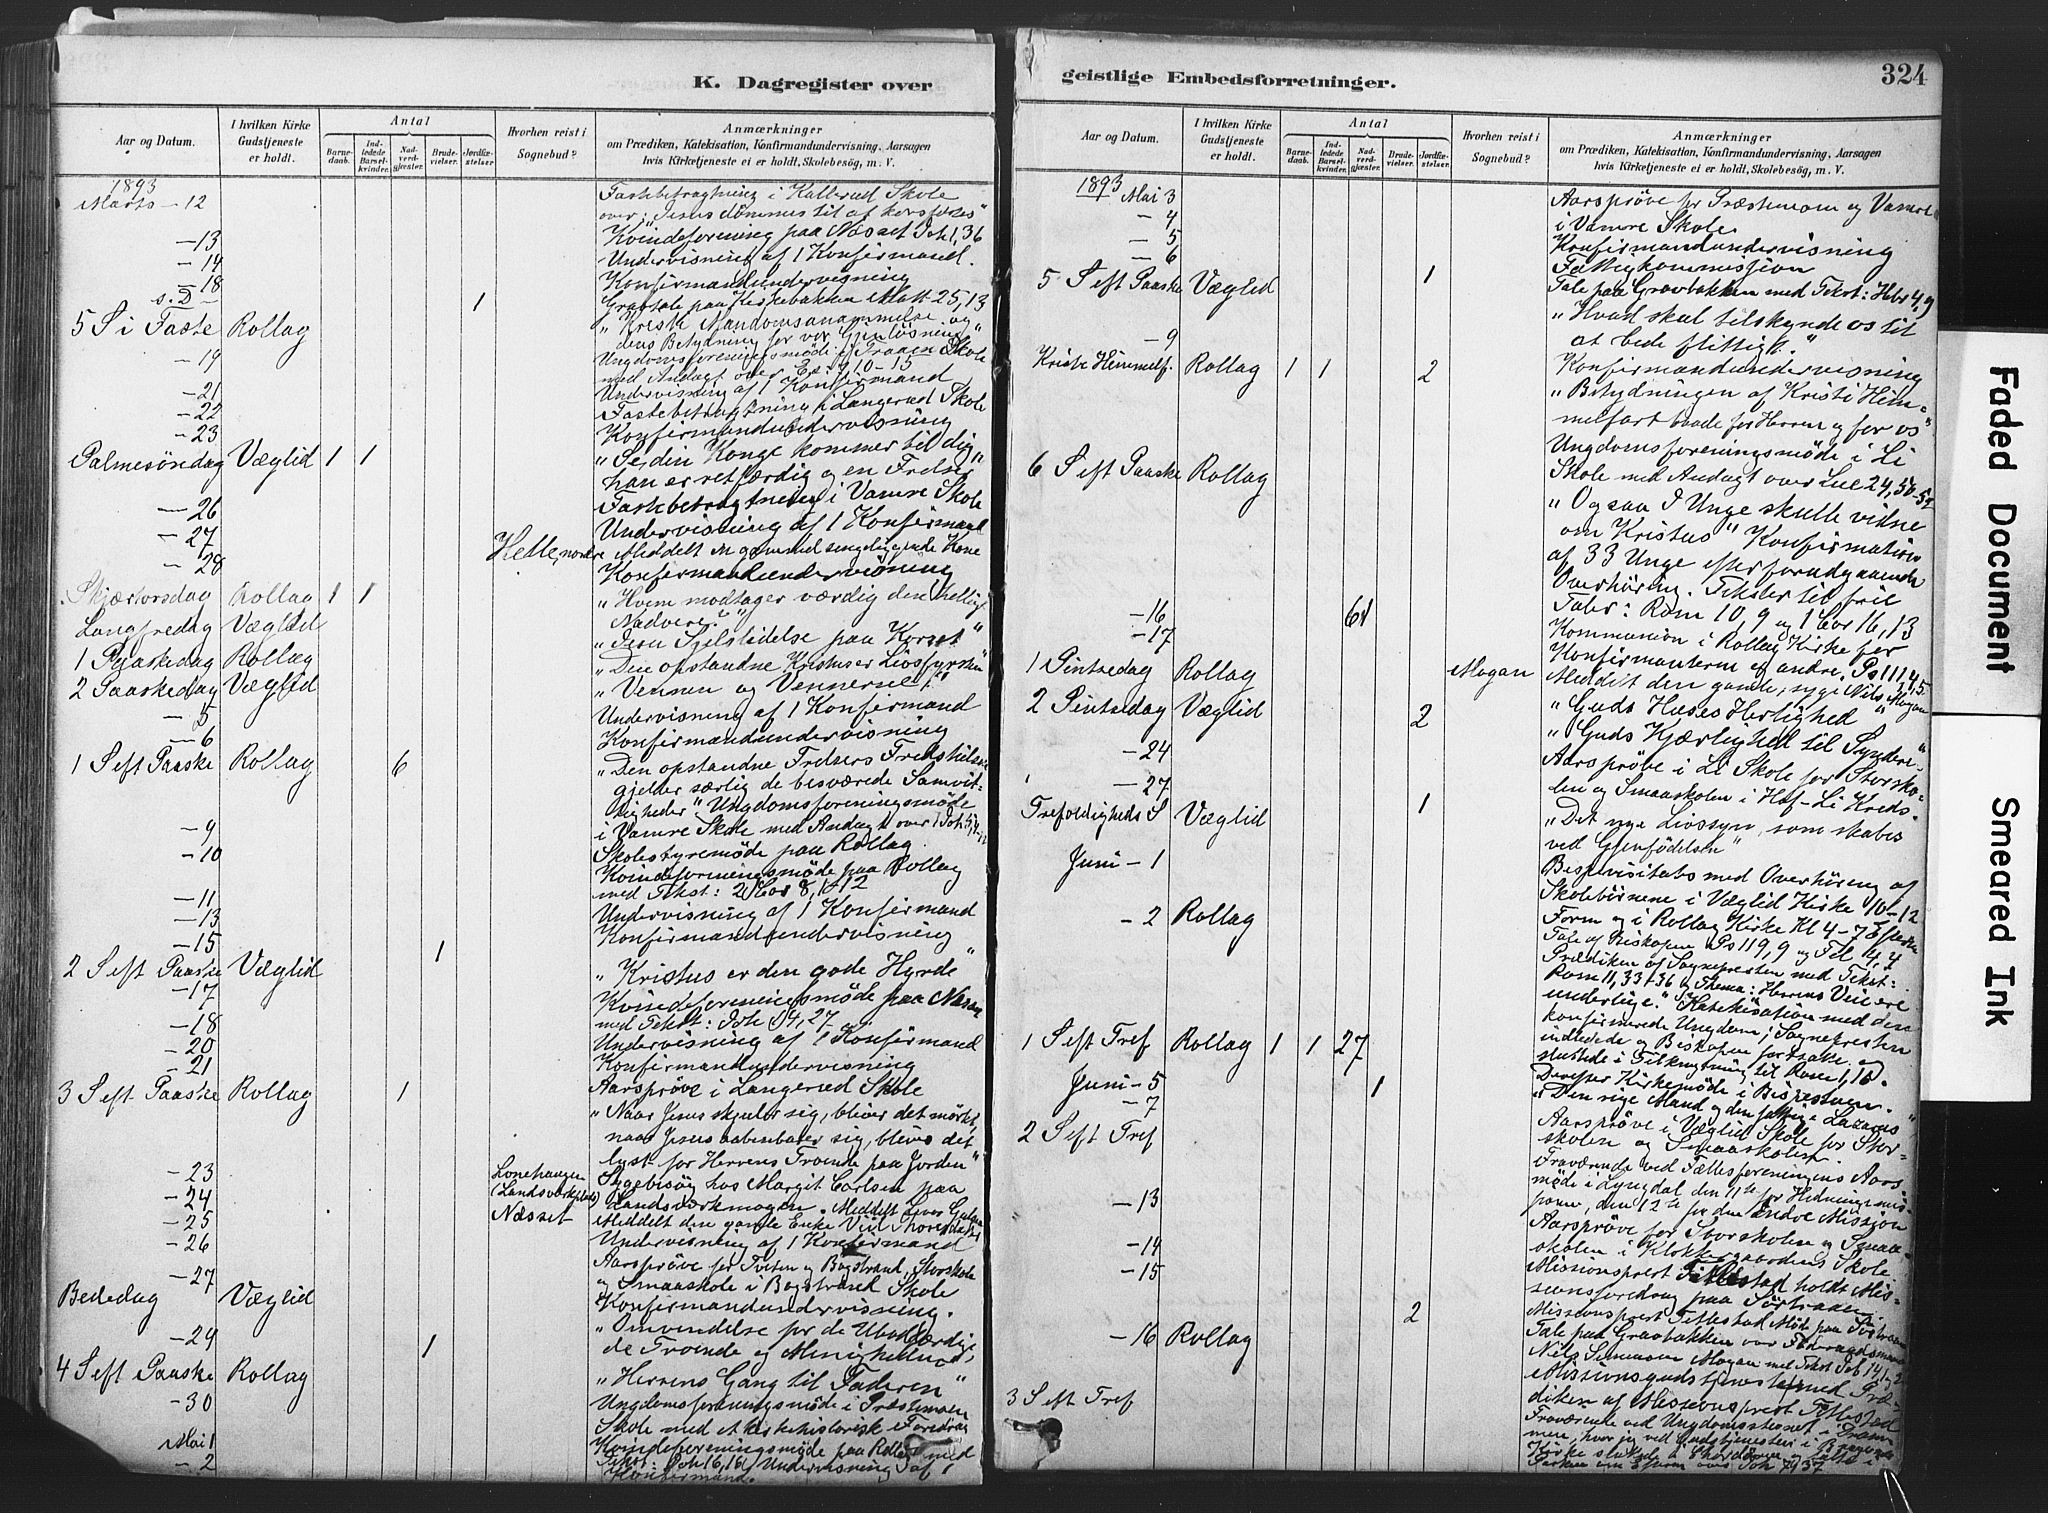 K. Dagregister over
Aar og Datum.
I hvilken Kirke Gudstjeneste er holdt.
Antal
Barnedaab.
Indledede Barselkvinder.
Nadverdgjester.
Brudevielser.
Jordfæstelser.
Hvorhen reist i Sognebud?
Anmærkninger
om Prædiken, Katekisation, Konfirmandundervisning, Aarsagen
hvis Kirketjeneste ei er holdt, Skolebesög, m. V.
1893
Marts - 12
Fastebetragtning i Kallerud Skole
over: "Jesus dömmes til at korsfæstes"
- 13
Kvindeforening paa Næsset Joh 1,36
- 14
Undervisning af 1 Konfirmand.
- 18
Konfirmandundervisning
s. D - 1
Gravtale paa Kirkebakken Matt 25,13
5 S i Faste Rollag
"Kristi Mandomsanammelse og
dens Betydning for vor Gjenlösning"
- 19
Ungdomsforeningsmöde i Traaen Skole
med Andagt over
- 21
Undervisning af 1 Konfirmand
- 22
Fastebetragtning i Langerud Skole
- 23
Konfirmandundervisning
Palmesöndag Væglid 1 1
"Se, din Konge kommer til dig,
han er retfærdig og en Frelser"
- 26
Fastebetragtning i Vamre Skole
- 27
Undervisning af 1 Konfirmand
- 28 Helle, nordre
Meddelt en gammel sengeliggende Kone
Konfirmandundervisning
Skjærtorsdag Rollag 1 1
"Hvem modtager værdig den hellige
Nadvere?"
Langfredag Væglid
"Jesu Sjelslidelse paa Korset"
1 Paaskedag Rollag
"Den opstandne Kristus er Livsfyrsten"
2 Paaskedag Væglid
"Vennen og Vennerne"
- 5
Undervisning af 1 Konfirmand
- 6
Konfirmandundervisning
1 S eft Paaske Rollag 6
"Den opstandne Frelsers Fredshilsen
gjelder særlig de besværede Samvit-
tigheder" Ungdomsforeningsmöde
i Vamre Skole med Andagt over 1 Joh 5,4-12
- 9
Skolestyremöde paa Rollag
- 10
Kvindeforeningsmöde paa Rollag
med Tekst: 2 Kor 8,1-12
- 11
Undervisning af 1 Konfirmand
- 13
Konfirmandundervisning
- 15 1
2 S eft Paaske Væglid
"Kristus er den gode Hyrde"
- 17
Kvindeforeningsmöde paa
med Tekst: Joh 14,27
- 18
Undervisning af 1 Konfirmand
- 20
Konfirmandundervisning
- 21
Aarspröve i Langerud Skole
3 S eft Paaske Rollag 1
"Naar Jesus skjuler sig, bliver det mörkt,
naar Jesus aabenbarer sig, blives det
lyst for Herrens Troende paa Jorden"
- 23 Lonehaugen
(Landsværkplads)
Sygebesög hos Margit Carlsen paa
- 24
Landsværkmogen. Meddelt
- 25 Næsset
Meddelt den gamle Enke
- 26
Undervisning af 1 Konfirmand
- 27
Aarspröve for Tveten og Bogstrand, Storskole
og Smaaskole i Bogstrand Skole
Konfirmandundervisning.
Bededag Væglid
"Omvendelse for de Ubodfærdige,
de Troende og Menigheden"
- 29 1
4 S eft Paaske Rollag
"Herrens Gang til Faderen"
- 30
Ungdomsforeningsmöde i Præstemoen
Skole med et kirkehistorisk Foredrag
Mai 1
Kvindeforeningsmöde paa Rollag med
- 2
Tekst: Joh 16,16. Undervisning af 1
Konfirmand.
geistlige Embedsforretninger.
324
Aar og Datum.
I hvilken Kirke Gudstjeneste er holdt.
Antal
Barnedaab.
Indledede Barselkvinder.
Nadverdgjester.
Brudevielser.
Jordfæstelser.
Hvorhen reist i Sognebud?
Anmærkninger
om Prædiken, Katekisation, Konfirmandundervisning, Aarsagen
hvis Kirketjeneste ei er holdt, Skolebesög, m. V.
1893 Mai 3
Aarspröve for Præstemoen og Vamre
- 4
i Vamre Skole
- 5
Konfirmandundervisning
- 6
Fattigkommissjion
5 S eft Paaske Væglid 1
Tale paa Gravbakken med Tekst: Hebr 4,9
"Hvad skal tilskynde os til
at bede flittigt."
- 9
Konfirmandundervisning
Kristi Himmelf. Rollag 1 1 2
"Betydningen af Kristi Him-
melfart baade for Herren og for os"
6 S eft Paaske Rollag
Ungdomsforeningsmöde i Li
Skole med Andagt over Luc 24,50-52
"Ogsaa I Unge skulle vidne
om Kristus" Konfirmation
af 33 Unge efter forudgaaende
Overhöring. Tekster til frie
Taler: Rom 10,9 og 1 Cor 16,13
- 16 61
Kommunion i Rollag Kirke for
- 17
Konfirmanterne og andre. Ps 111,4,5
1 Pintsedag Rollag Mogan
Meddelt den gamle, syge Nils Mogan
"Guds Huses Herlighed"
2 Pintsedag Væglid 2
"Guds Kjærlighed til Syndere"
- 24
Aarspröve i Li Skole for Storsko-
- 27
len og Smaaskolen i Hof-Li Kreds.
Trefoldigheds S Væglid 1
"Det nye Livssyn, som skabes
ved Gjenfödelsen"
Juni - 1
Bispevisitats med Overhöring af
Skolebörnene i Væglid Kirke 10-12
- 2 Rollag
Form og i Rollag Kirke Kl 4-7 Efterm
Tale af Biskopen Ps 119,9 og Fil 4,4
Prædiken af Sognepresten med Tekst:
Rom 11,33-36 og Thema: Herrens Veie ere
underlige." Katekisation med den
konfirmerede Ungdom, Sognepresten
indledede og Biskopen fortsatte og
sluttede i Tilknytning til Rom 1,16.
Derefter Kirkemöde i Bispevisen.
1 S eft Tref Rollag 1 1 27
"Den rige Mand og den fattige Lazarus"
Juni - 5 1
Aarspröve i Væglid Skole for Stor-
- 7
skolen og Smaaskolen.
2 S eft Tref
Fraværende ved Fællesforeningens Aars-
möde i Lyngdal den 11te for Hedningemis-
sionen, den 12te for den Indre Mission
- 13
Aarspröve for Storskolen og Smaa-
skolen i Klokkergaardens Skole
- 14
Missionsprest Tillestad holdt Mis-
sionsforedrag paa Sörtraaen.
- 15
Missionsprest Tillestad Möde paa Sörtraaen
2
Tale paa Gravbakken over Föderaadsmand
Nils Simenson Mogan med Tekst Job 14,1-2
- 16 Rollag
Missionsgudstjeneste med Præ-
diken af Missionsprest Tillestad
3 S eft Tref
Fraværende ved Ungdomsstevnet i Dram-
men, hvor jeg ved Gudstjenesten i Bragernes
Kirke
Faded Document
Smeared Ink